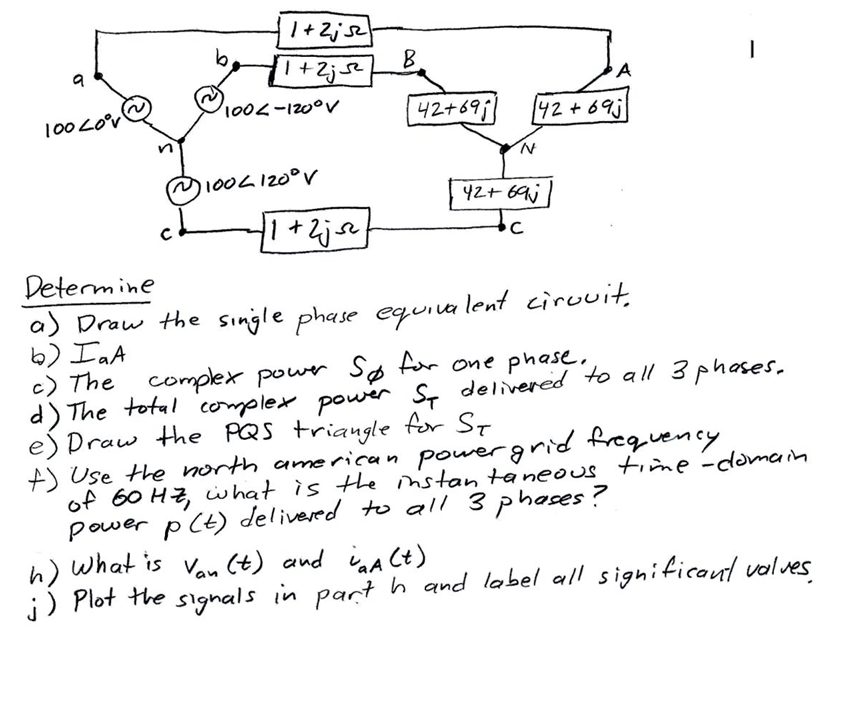 1+2jΩ
1
b
1+2jΩ
B
A
a
100∠0°V
100∠-120°V
42+69j
42+69j
n
N
100∠120°V
42+69j
c
1+2jΩ
C
Determine
a) Draw the single phase equivalent circuit.
b) IaA
c) The complex power Sø for one phase.
d) The total complex power ST delivered to all 3 phases.
e) Draw the PQS triangle for ST
f) Use the north american power grid frequency
of 60 HZ, what is the instantaneous time-domain
power p(t) delivered to all 3 phases?
h) What is Van(t) and iaA(t)
j) Plot the signals in part h and label all significant values.